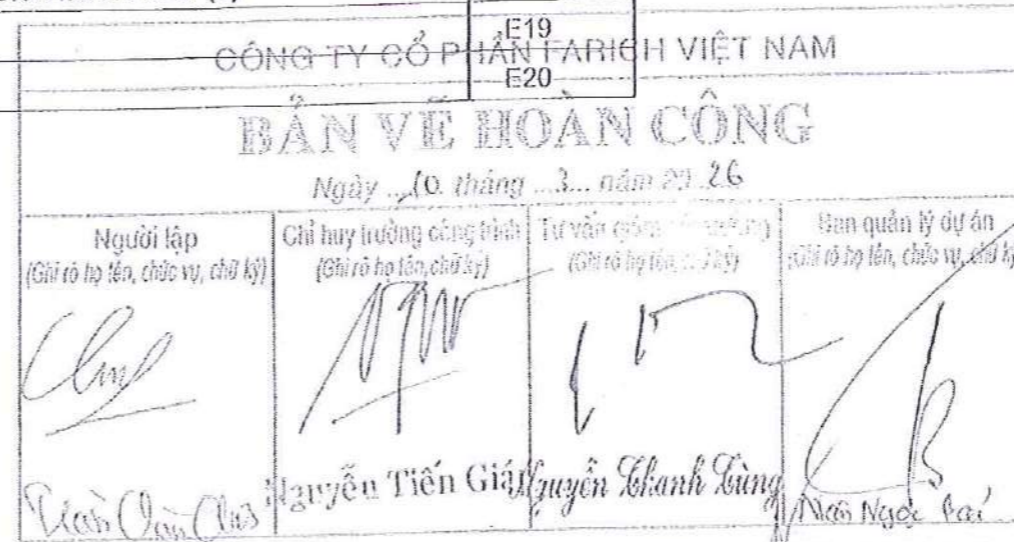 E19
CÔNG TY CỔ PHẦN FARICH VIỆT NAM
E20
BẢN VẼ HOÀN CÔNG
Ngày ... 10. tháng ... 3 ... năm 20 26
Người lập
(Ghi rõ họ tên, chức vụ, chữ ký)
Chỉ huy trưởng công trình
(Ghi rõ họ tên, chữ ký)
Tư vấn
(Ghi rõ họ tên, chữ ký)
Ban quản lý dự án
(Ghi rõ họ tên, chức vụ, chữ ký
Nguyễn Tiến Giáp
Nguyễn Khanh Tùng
Ngọc